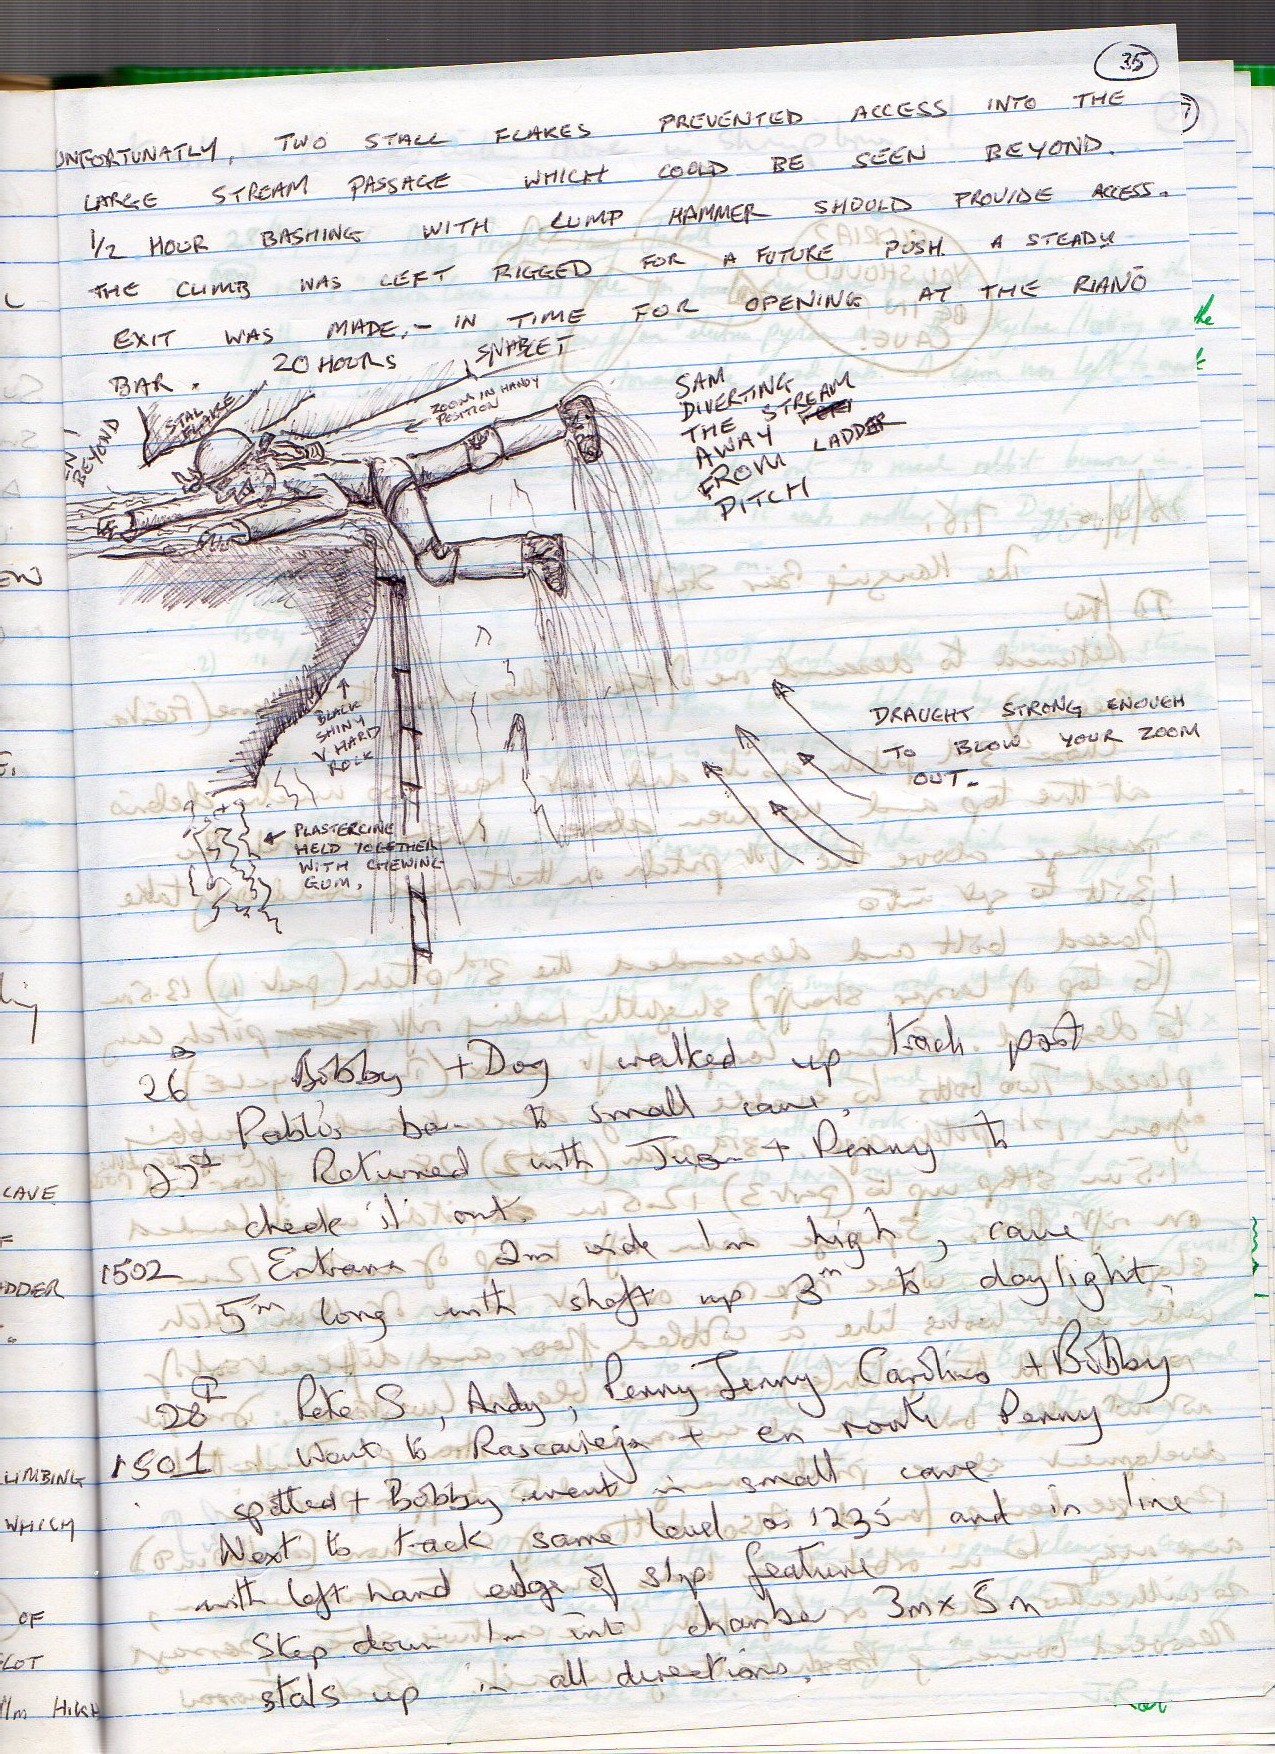 35
UNFORTUNATLY, TWO STALL FLAKES PREVENTED ACCESS INTO THE
LARGE STREAM PASSAGE WHICH COULD BE SEEN BEYOND.
1/2 HOUR BASHING WITH LUMP HAMMER SHOULD PROVIDE ACCESS.
THE CLIMB WAS LEFT RIGGED FOR A FUTURE PUSH. A STEADY
EXIT WAS MADE. - IN TIME FOR OPENING AT THE RIAÑO
BAR. 20 HOURS
STAL FLAKE
ZOOM IN HANDY
POSITION
BEYOND
SAM
DIVERTING
THE STREAM
AWAY
FROM LADDER
PITCH
BLACK
SHINY
V HARD
ROCK
DRAUGHT STRONG ENOUGH
TO BLOW YOUR ZOOM
OUT.
PLASTERCINE
HELD TOGETHER
WITH CHEWING
GUM.
26 Bobby + Dog walked up track past
Pablo's bar to small cave.
27 Returned with Juan + Penny to
check it out.
1502 Entrance 2m wide 1m high, cave
5m long with shaft up 3m to daylight.
28 Pete S, Andy, Penny Jenny Carolina + Bobby
1501 Went to Rascavieja + en route Penny
spotted + Bobby went in small cave
Next to track same level as 1235 and in line
with left hand edge of slip feature
Step down 1m into chamber 3m x 5m
stals up in all directions.
CAVE
LIMBING
WHICH
OF